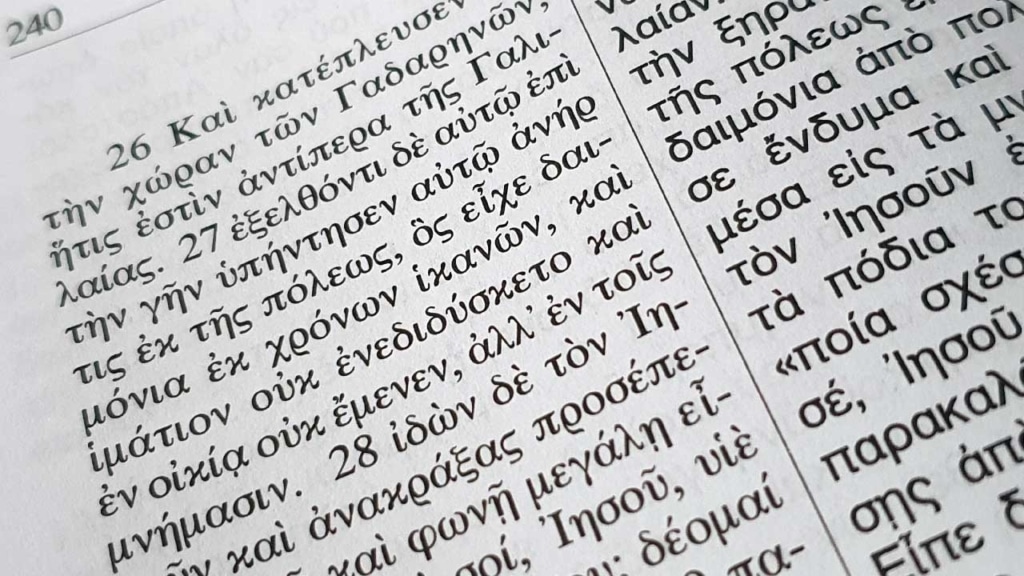 240
26 Καὶ κατέπλευσεν
τὴν χώραν τῶν Γαδαρηνῶν,
ἥτις ἐστὶν ἀντίπερα τῆς Γαλι-
λαίας. 27 ἐξελθόντι δὲ αὐτῷ ἐπὶ
τὴν γῆν ὑπήντησεν αὐτῷ ἀνήρ
τις ἐκ τῆς πόλεως, ὃς εἶχε δαι-
μόνια ἐκ χρόνων ἱκανῶν, καὶ
ἱμάτιον οὐκ ἐνεδιδύσκετο καὶ
ἐν οἰκίᾳ οὐκ ἔμενεν, ἀλλ' ἐν τοῖς
μνήμασιν. 28 ἰδὼν δὲ τὸν Ἰη-
καὶ ἀνακράξας προσέπε-
καὶ φωνῇ μεγάλῃ εἶ-
Ἰησοῦ, υἱὲ
δέομαί
τὴν
τῆς πόλεως
δαιμόνια ἀπὸ
σε ἔνδυμα καὶ
μέσα εἰς τὰ
τὸν Ἰησοῦν
τὰ πόδια
«ποία
σέ, Ἰησοῦ
σῃς
Εἶπε